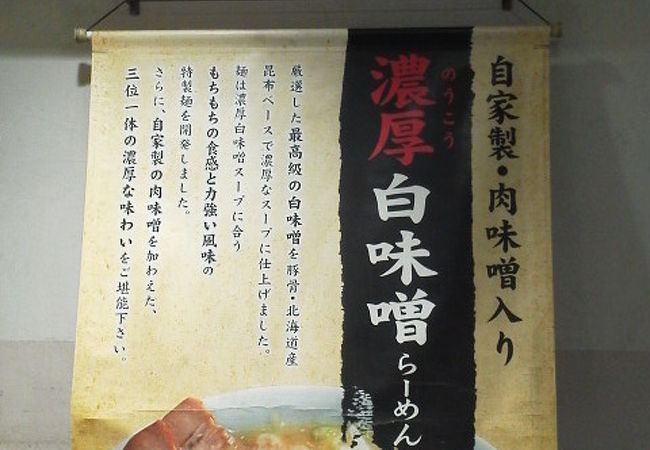 自家製・肉味噌入り
のうこう
濃厚白味噌らーめん
厳選した最高級の白味噌を豚骨・北海道産
昆布ベースで濃厚なスープに仕上げました。
麺は濃厚白味噌スープに合う
もちもちの食感と力強い風味の
特製麺を開発しました。
さらに、自家製の肉味噌を加わえた、
三位一体の濃厚な味わいをご堪能下さい。